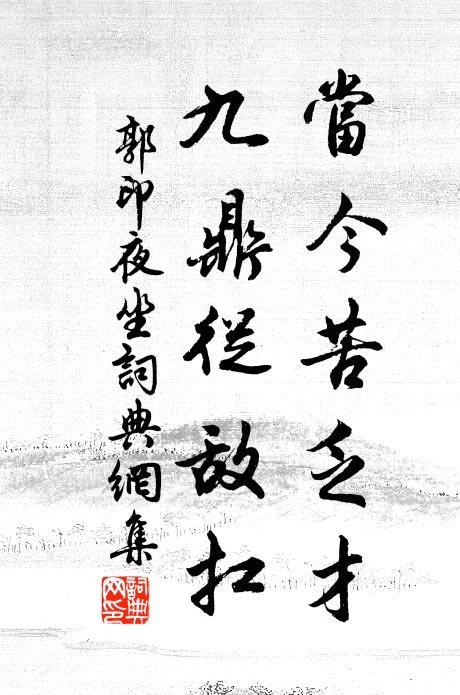 當今苦乏才
九鼎從敵扛
郭印夜坐詞典網集
詞典
网印